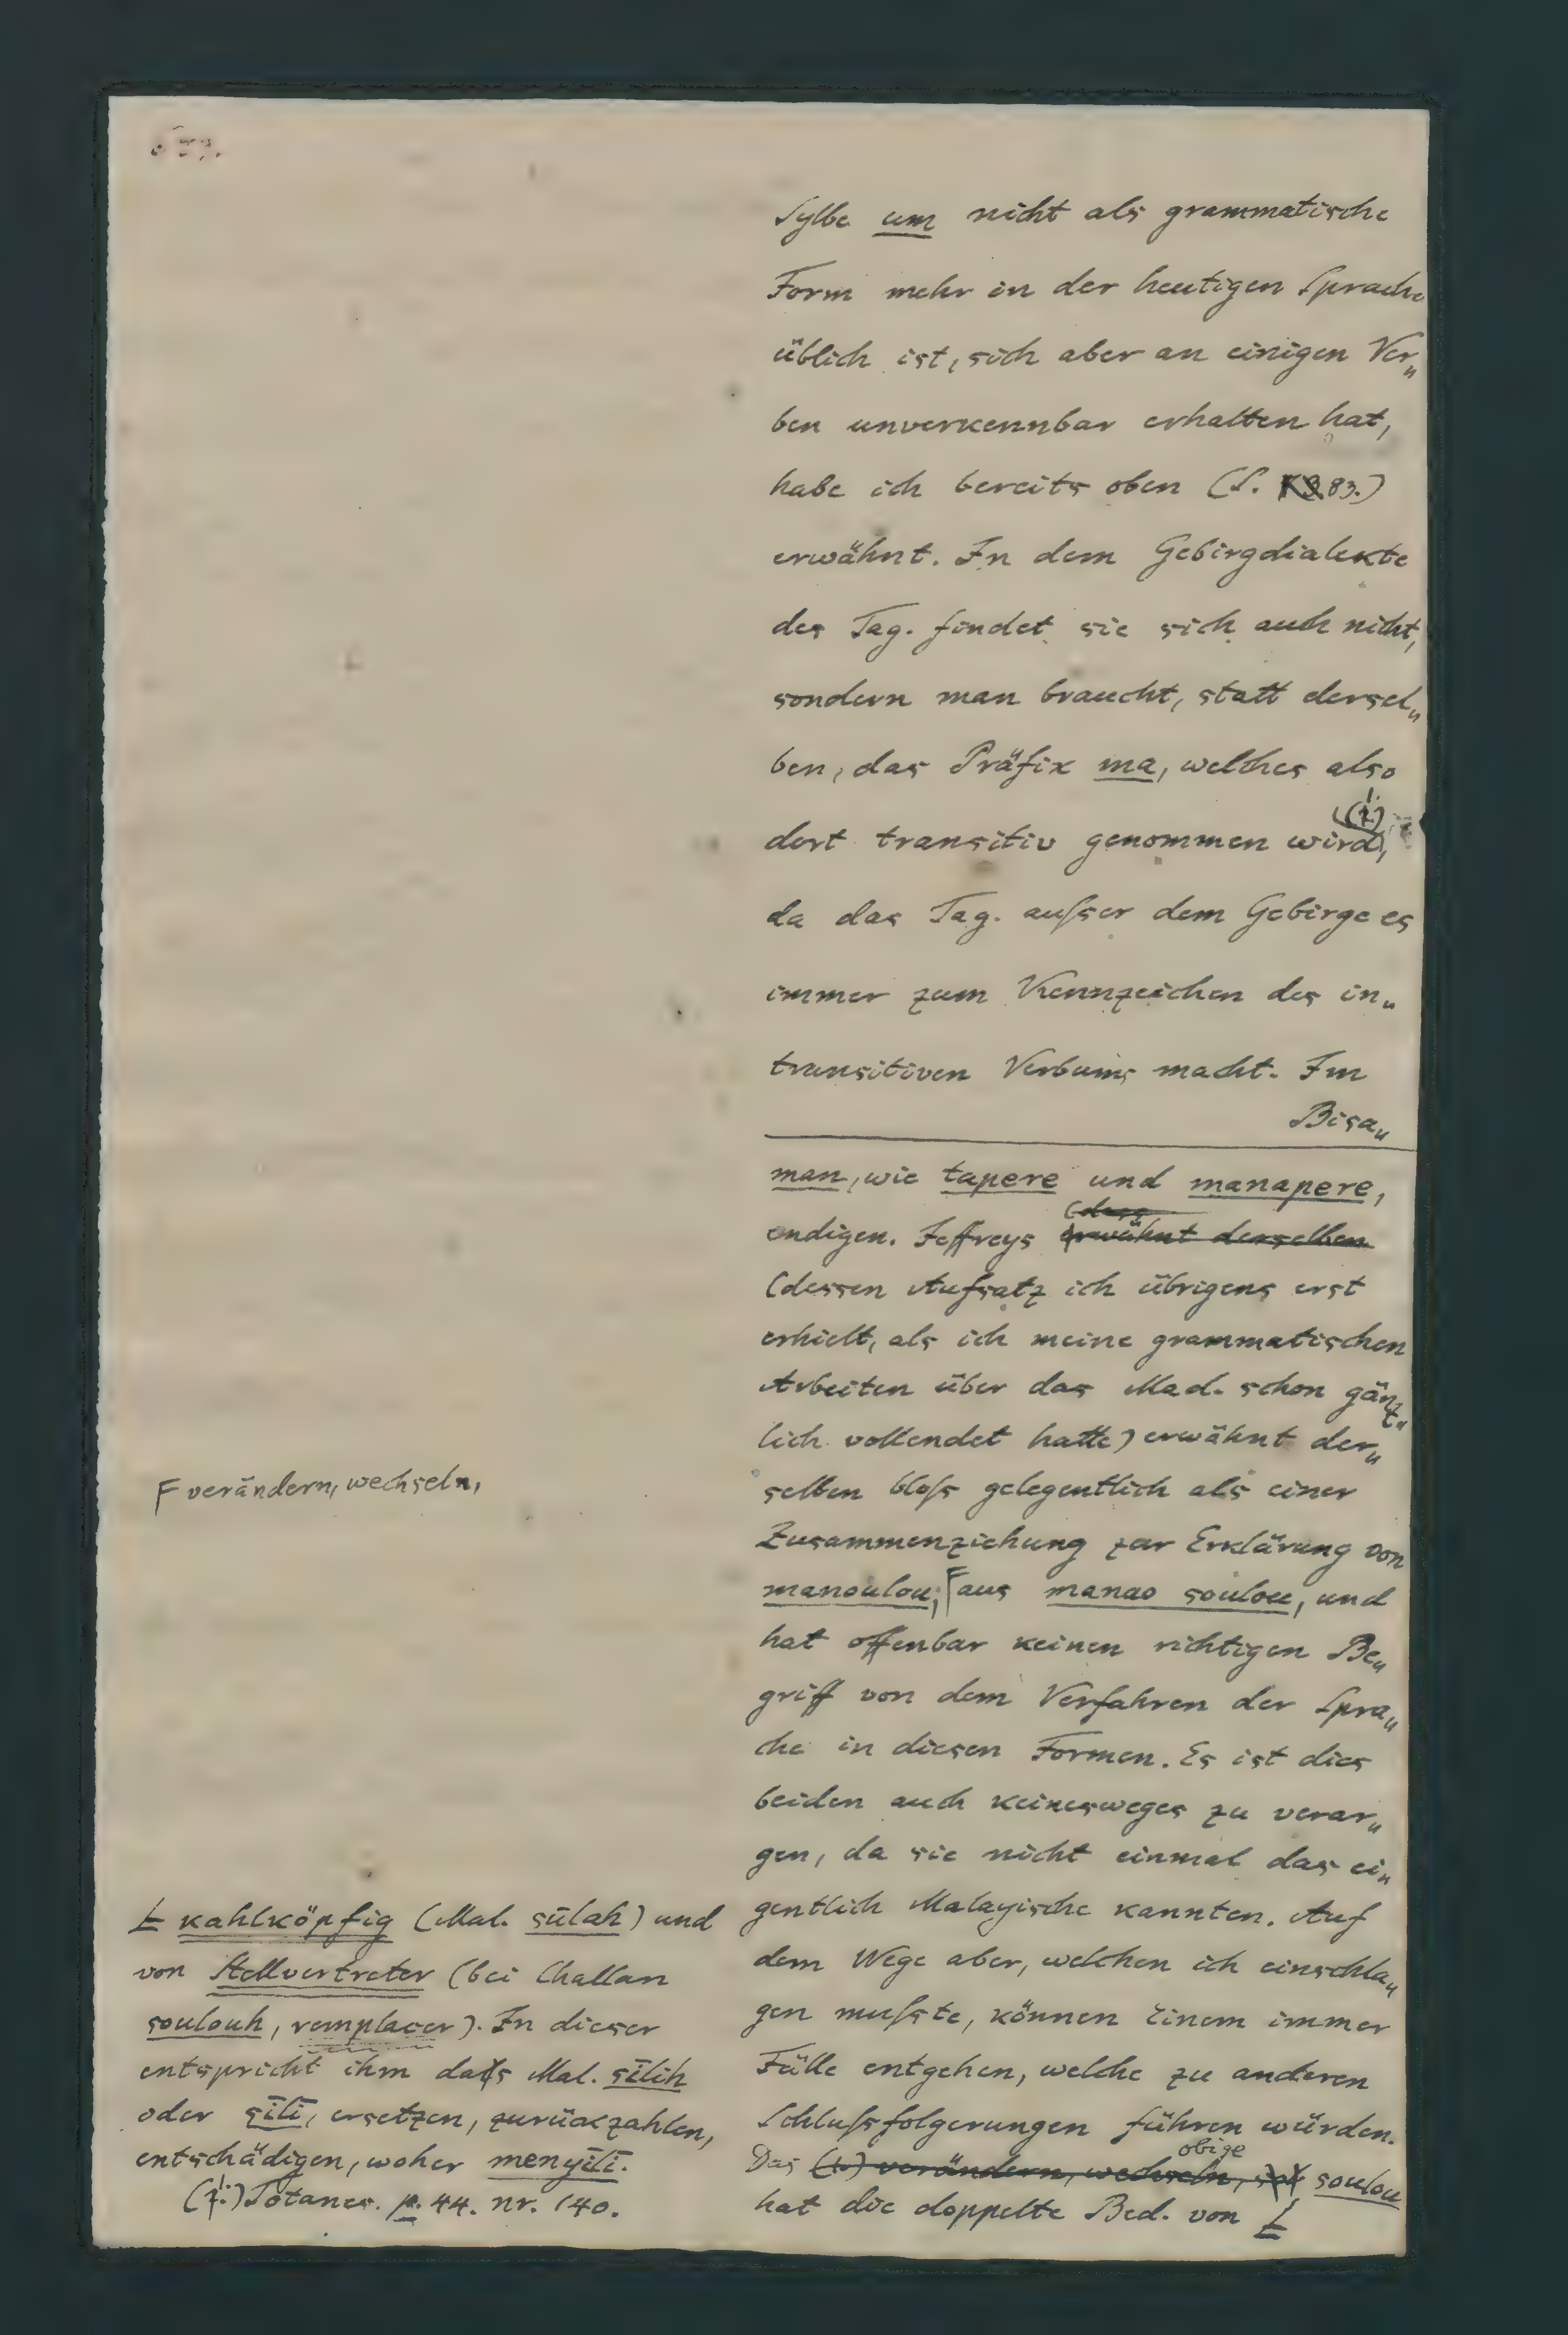 Sylbe um nicht als grammatische
Form mehr in der heutigen Sprache
üblich ist, sich aber an einigen Ver„
ben unverkennbar erhalten hat,
habe ich bereits oben (S. 83.)
erwähnt. In dem Gebirgdialekte
des Tag. findet sie sich auch nicht,
sondern man braucht, statt dersel„
ben, das Präfix ma, welches also
dort transitiv genommen wird, (1.)
da das Tag. aufser dem Gebirge es
immer zum Kennzeichen des in„
transitiven Verbums macht. Im
Bisa„
man, wie tapere und manapere,
endigen. Jeffreys (dess erwähnt derselben
(dessen Aufsatz ich übrigens erst
erhielt, als ich meine grammatischen
Arbeiten über das Mad. schon gänz„
lich vollendet hatte) erwähnt der„
selben blofs gelegentlich als einer
Zusammenziehung zur Erklärung von
manoulou, F aus manao soulou, und
hat offenbar keinen richtigen Be„
griff von dem Verfahren der Spra„
che in diesen Formen. Es ist dies
beiden auch keinesweges zu verar„
gen, da sie nicht einmal das ei„
gentlich Malayische kannten. Auf
dem Wege aber, welchen ich einschla„
gen mufste, können Einem immer
Fälle entgehen, welche zu anderen
Schlufsfolgerungen führen würden.
Das (1.) verändern, wechseln, obige soulou
hat die doppelte Bed. von Ł
F verändern, wechseln,
Ł kahlköpfig (Mal. sūlah) und
von Stellvertreter (bei Challan
soulouh, remplacer). In dieser
entspricht ihm das Mal. sīlih
oder sīlī, ersetzen, zurückzahlen,
entschädigen, woher menyīlī.
(1.) Totanes. p. 44. nr. 140.